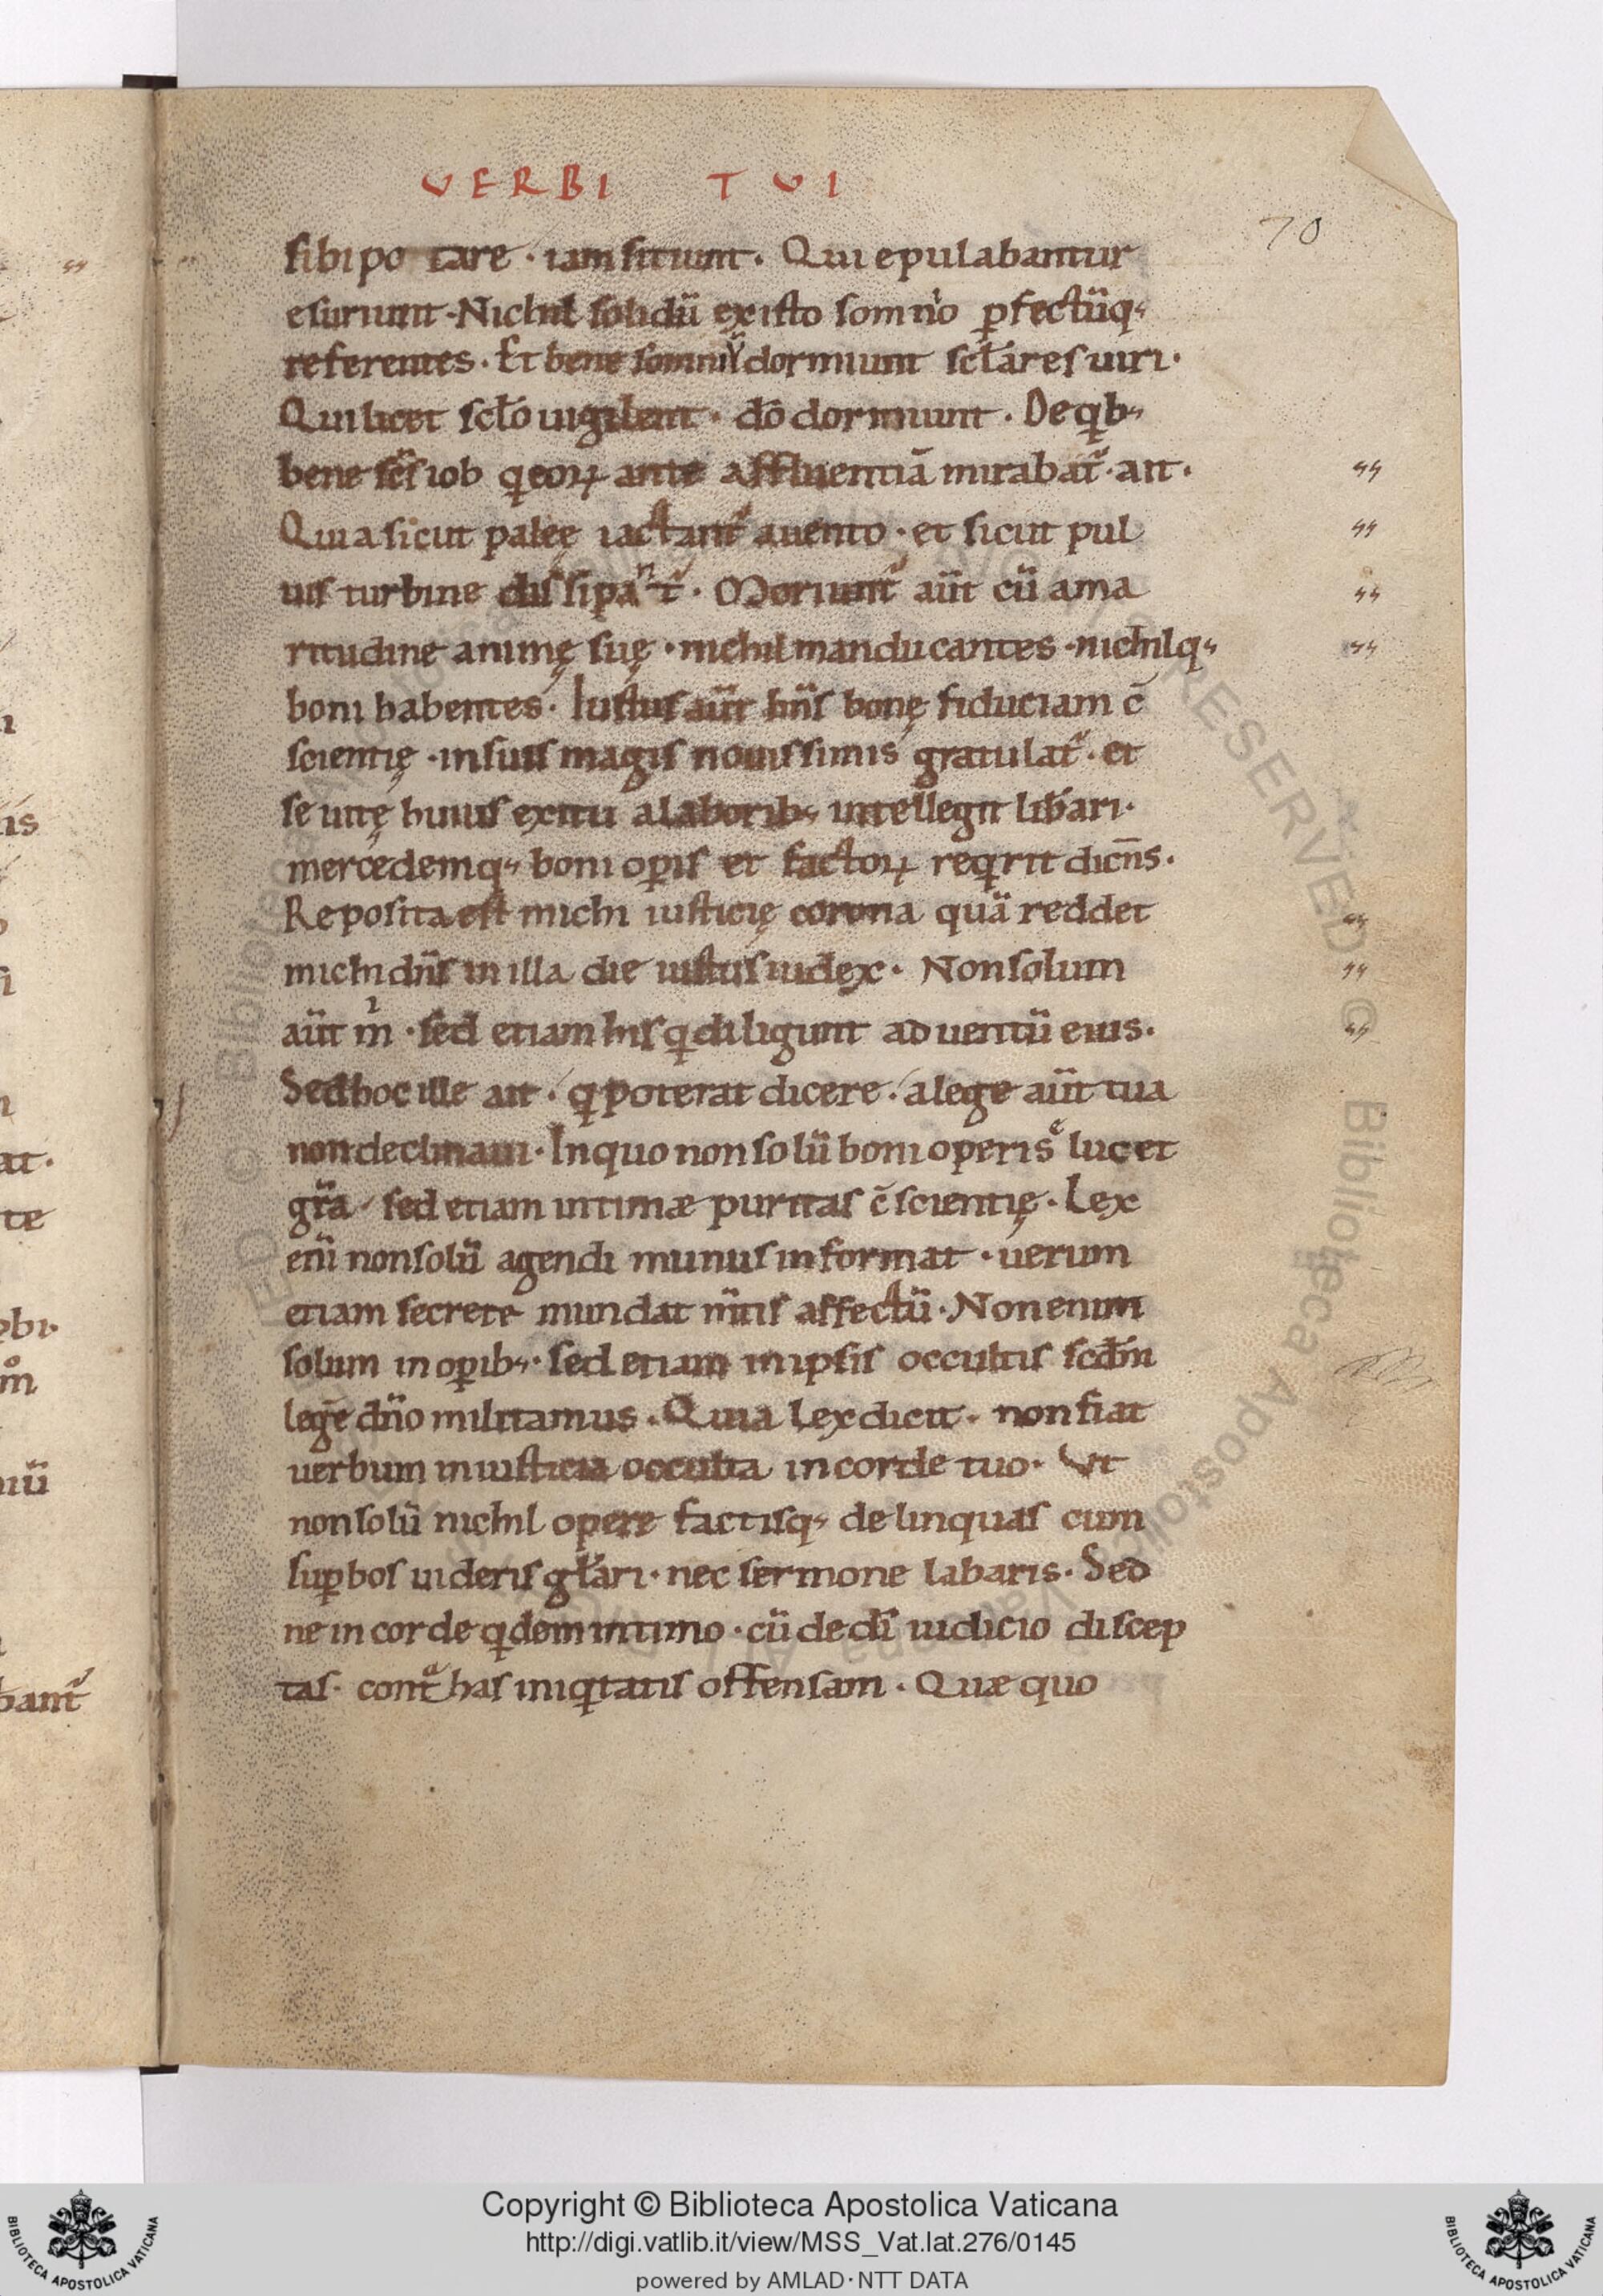 VERBI TVI
70
sibi po tare · iam sitiunt. Qui epulabantur
esuriunt · Nichil solidū ex isto somnio ꝑfectūq;
referentes. Et bene somnū dormiunt sc̄lares uiri.
Qui licet sc̄lo uigilent · dō dormiunt. De qͥb;
bene sc̄s iob qͥ eoꝝ ante affluentiā mirabat᷑ · ait.
Quia sicut paleę iactant᷑ a uento · et sicut pul
uis turbine dissipant᷑. Moriunt᷑ aūt cū ama
ritudine animę suę · nichil manducantes · nichilq;
boni habentes. Iustus aūt hn̄s bonę fiduciam c̄
scientię · in suis magis nouissimis gratulat᷑ · et
se uitę huius exitu a laborib; intellegit lib̄ari.
mercedemq; boni oꝑis et factoꝝ reqͥrit dicn̄s.
Reposita est michi iusticię corona quā reddet
michi dn̄s in illa die iustus iudex. Non solum
aūt mͥ · sed etiam his qͥ diligunt aduentū eius.
Sed hoc ille ait · qͥ poterat dicere · a lege aūt tua
non declinaui. In quo non solū boni operis lucet
gr̄a · sed etiam intimæ puritas c̄scientię. Lex
enī non solū agendi munus informat · uerum
etiam secrete mundat m̄tis affectū. Non enim
solum in oꝑib; · sed etiam in ipsis occultis scd̄m
legē dn̄o militamus. Quia lex dicit · non fiat
uerbum iniusticia occulta in corde tuo. Vt
non solū nichil opere factisq; delinquas cum
suꝑbos uideris gl̄ari · nec sermone labaris. Sed
ne in corde qͥdem intimo · cū de dī iudicio discep
tas · contᷓhas iniqͥtatis offensam. Quæ quo
Copyright © Biblioteca Apostolica Vaticana
http://digi.vatlib.it/view/MSS_Vat.lat.276/0145
powered by AMLAD·NTT DATA
BIBLIOTECA APOSTOLICA VATICANA
BIBLIOTECA APOSTOLICA VATICANA